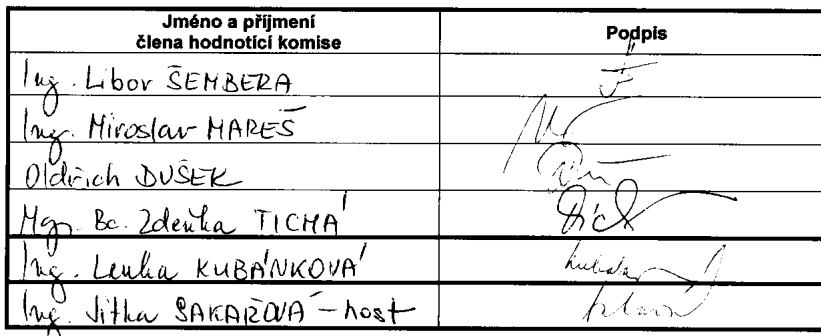 Jméno a příjmení
člena hodnotící komise
Podpis
Ing. Libor ŠEMBERA
Ing. Miroslav MAREŠ
Oldřich DUŠEK
Mgr. Bc. Zdeňka TICHÁ
Ing. Lenka KUBÁNKOVÁ
Ing. Jitka - host